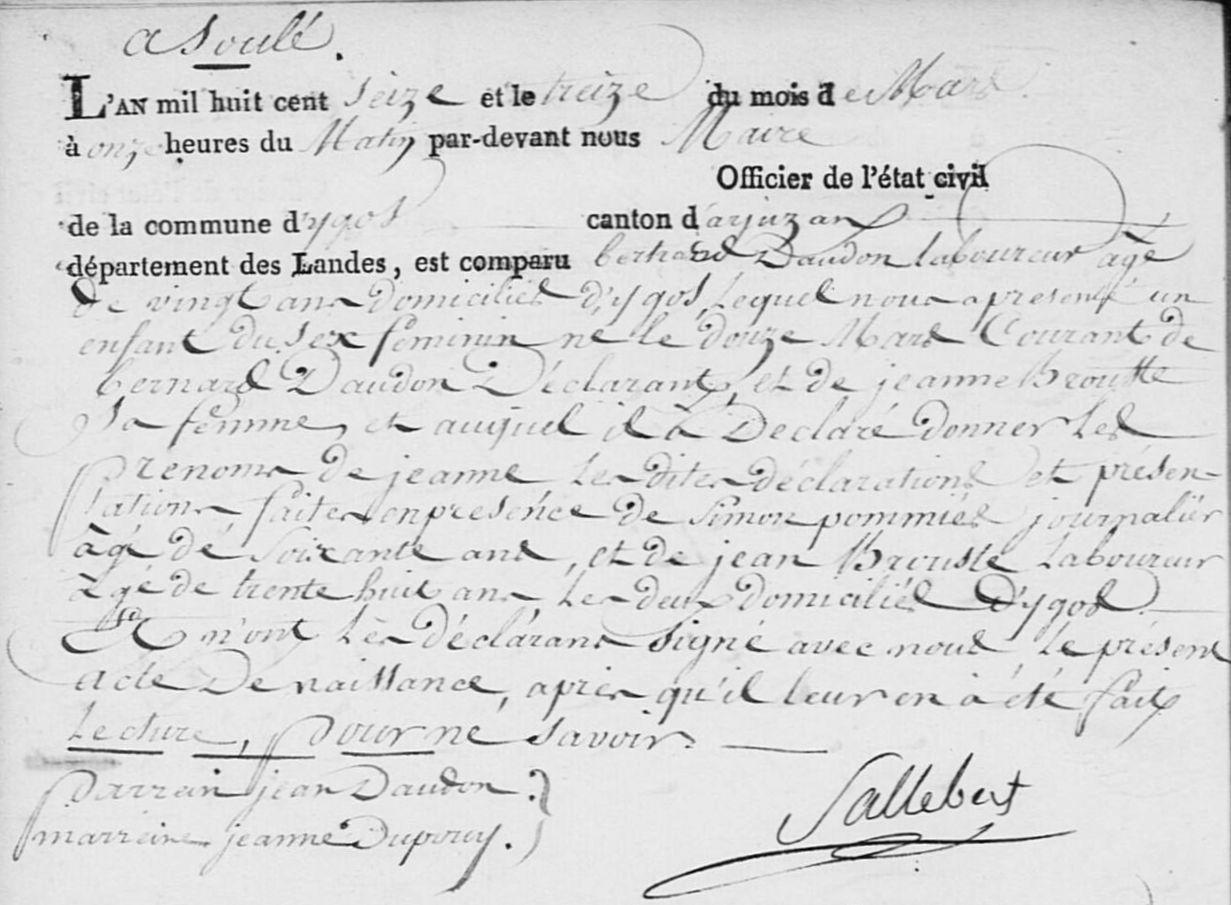 a Soulé.
L'AN mil huit cent seize et le treize du mois de Mars
à onze heures du Matin par-devant nous Maire
Officier de l'état civil
de la commune d'ygos canton d'arjuzan
département des Landes, est comparu bertrand Daudon laboureur âgé
de vingt ans domicilié d'ygos, lequel nous a presenté un
enfant du sex féminin né le douze Mars Courant de
bernard Daudon Déclarant, et de jeanne Broustte
Sa femme, et auquel il à Declaré donner les
prenoms de jeanne les dites déclarations et présen-
tations faites en presénce de Simon pommiés journalier
âgé dé soixante ans, et de jean Brouste laboureur
âgé de trente huit ans les deux domiciliés d'ygos.
Et n'ont les déclarans signé avec nous, le présent
acte De naissance, après qu'il leur en à été fait
Lecture, pour né savoir.
parrein jean Daudon.
marreine jeanne Dupouy.
Sallebert